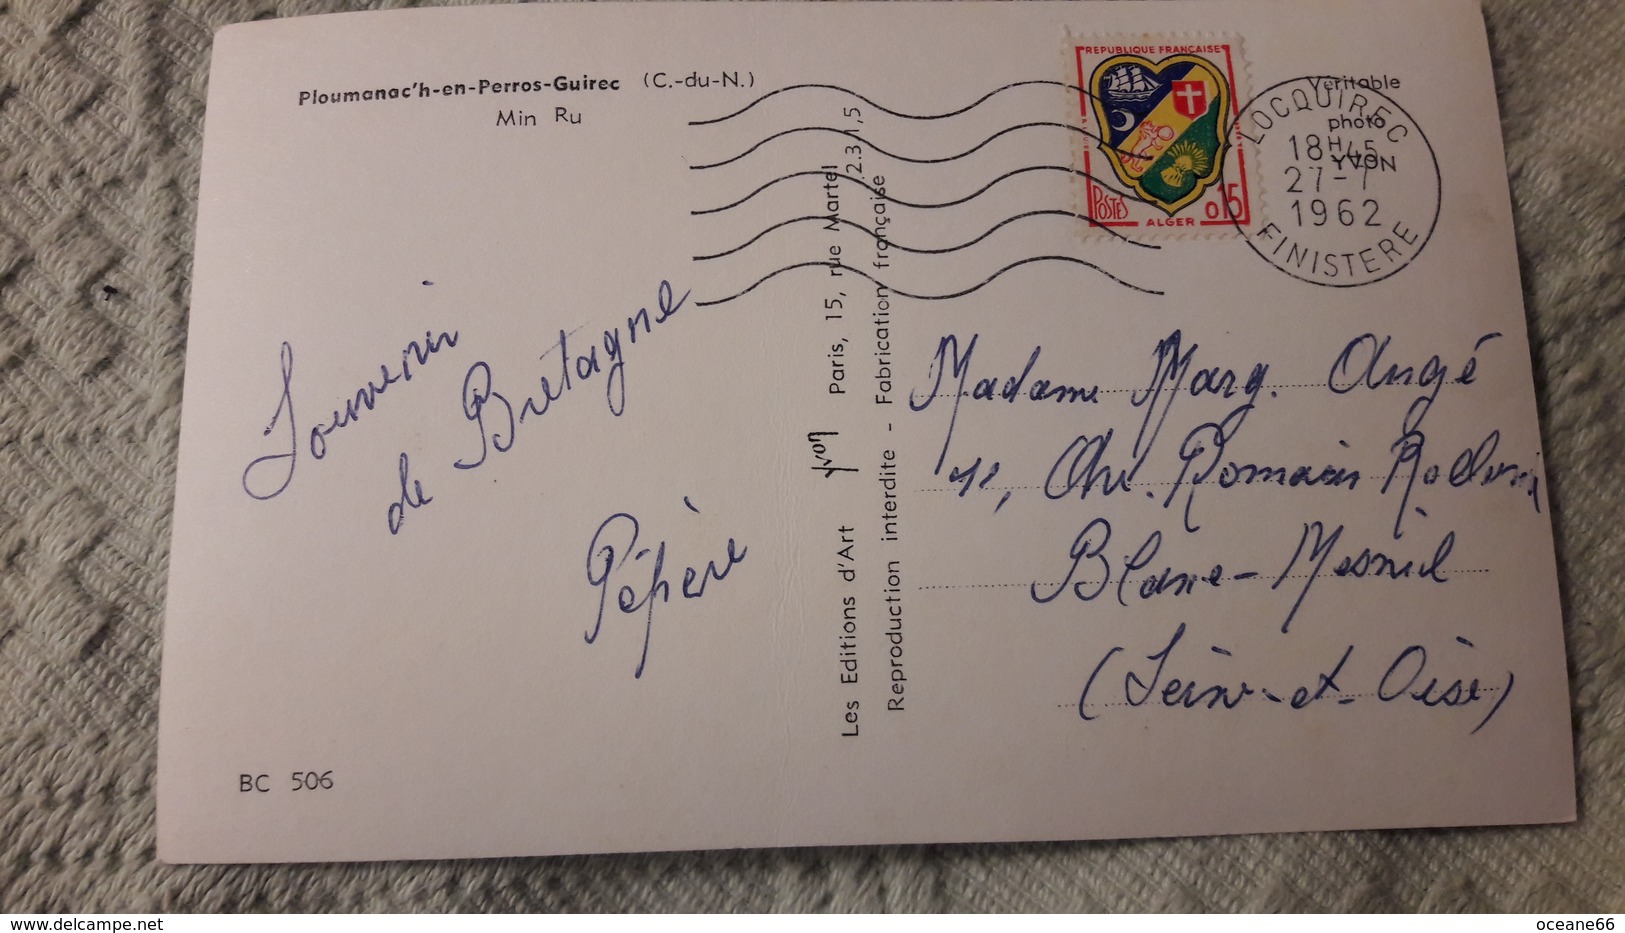 Ploumanac'h-en-Perros-Guirec (C.-du-N.)
Min Ru
Souvenir
de Bretagne
Pépère
BC 506
Les Editions d'Art yvon Paris, 15, rue Martel
Reproduction interdite - Fabrication française
REPUBLIQUE FRANÇAISE
POSTES
ALGER
0,15
Véritable
photo
YVON
LOCQUIREC
18H45
27-7
1962
FINISTERE
Madame Marg. Angé
Romain Rolland
Blanc-Mesnil
(Seine-et-Oise)
oceane66